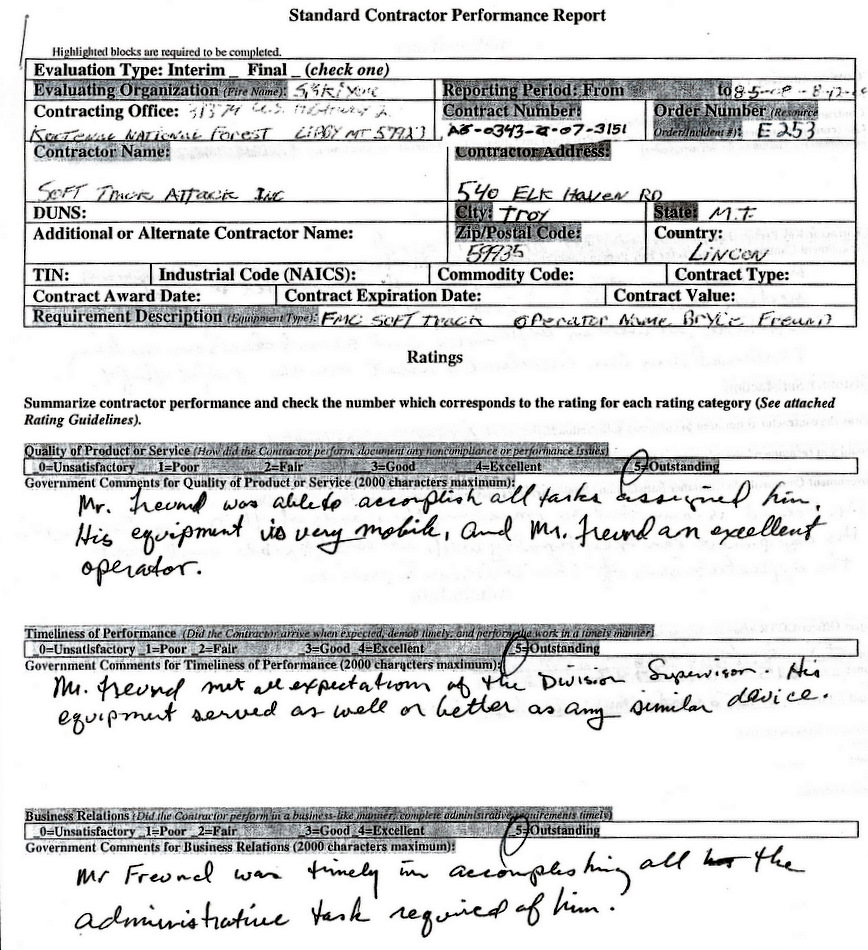 Standard Contractor Performance Report
Highlighted blocks are required to be completed.
Evaluation Type: Interim _ Final _ (check one)
Evaluating Organization (Fire Name): Reporting Period: From to 8-5-08 -
Contracting Office: 31374 U.S. 2 Contract Number: Order Number (Resource
National Forest Libby MT 59923 -0343- -07-3151 Order/Incident #): E 253
Contractor Name: Contractor Address:
Soft Track Attack Inc 540 Elk Haven RD
DUNS: City: Troy State: M.T.
Additional or Alternate Contractor Name: Zip/Postal Code: Country:
59935 Lincon
TIN: Industrial Code (NAICS): Commodity Code: Contract Type:
Contract Award Date: Contract Expiration Date: Contract Value:
Requirement Description (Equipment Type): FMC Soft Track Operator Name Bryce Freund
Ratings
Summarize contractor performance and check the number which corresponds to the rating for each rating category (See attached
Rating Guidelines).
Quality of Product or Service (How did the Contractor perform, document any noncompliance or performance issues)
_0=Unsatisfactory _1=Poor _2=Fair _3=Good _4=Excellent _5=Outstanding
Government Comments for Quality of Product or Service (2000 characters maximum):
Mr. Freund was able to accomplish all tasks assigned him.
His equipment is very mobile, and Mr. Freund an excellent
operator.
Timeliness of Performance (Did the Contractor arrive when expected, demob timely, and perform the work in a timely manner)
_0=Unsatisfactory _1=Poor _2=Fair _3=Good _4=Excellent _5=Outstanding
Government Comments for Timeliness of Performance (2000 characters maximum):
Mr. Freund met all expectations of the Division Supervisor. His
equipment served as well or better as any similar device.
Business Relations (Did the Contractor perform in a business-like manner, complete administrative requirements timely)
_0=Unsatisfactory _1=Poor _2=Fair _3=Good _4=Excellent _5=Outstanding
Government Comments for Business Relations (2000 characters maximum):
Mr Freund was timely in accomplishing all the
administrative task required of him.